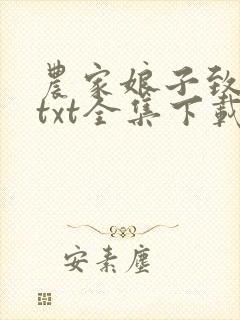 農家娘子致
txt全集下載
安素塵